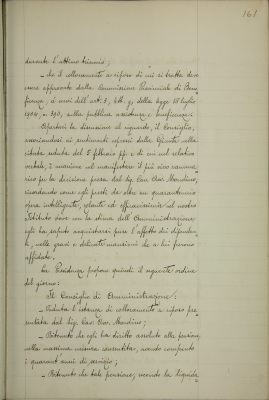 161
durante l'ultimo triennio;
— che il collocamento a riposo di cui si tratta deve
essere approvato dalla Commissione Provinciale di Bene-
ficenza, ai sensi dell'art. 3, lett. g, della legge 18 luglio
1904, n. 390, sulla pubblica assistenza e beneficenza:
Apertasi la discussione al riguardo, il Consiglio,
associandosi ai sentimenti espressi dalla Giunta nella
seduta del 5 febbraio pp. e di cui nel relativo
verbale, è unanime nel manifestare il più vivo ramma-
rico per la decisione presa dal Sig. Cav. Dott. Mandino,
ricordando come egli prestò da oltre un quarantennio
opera intelligente, zelante ed efficacissima nel nostro
Istituto dove con la stima dell'Amministrazione
egli ha saputo acquistarsi pure l'affetto dei dipenden-
ti, nelle gravi e delicate mansioni che a lui furono
affidate.
La Presidenza propone quindi il seguente ordine
del giorno:
Il Consiglio di Amministrazione:
— Veduta l'istanza di collocamento a riposo pre-
sentata dal Sig. Cav. Dott. Mandino;
— Ritenuto che egli ha diritto assoluto alla pensione
nella massima misura consentita, avendo compiuto
i quarant'anni di servizio;
— Ritenuto che tale pensione, secondo la liquida-